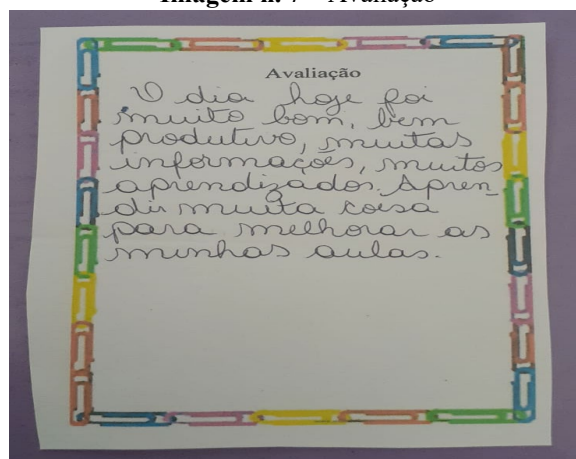 Imagem n. 7 – Avaliação
Avaliação
O dia hoje foi
muito bom, bem
produtivo, muitas
informações, muitos
aprendizados. Apren_
di muita coisa
para melhorar as
minhas aulas.